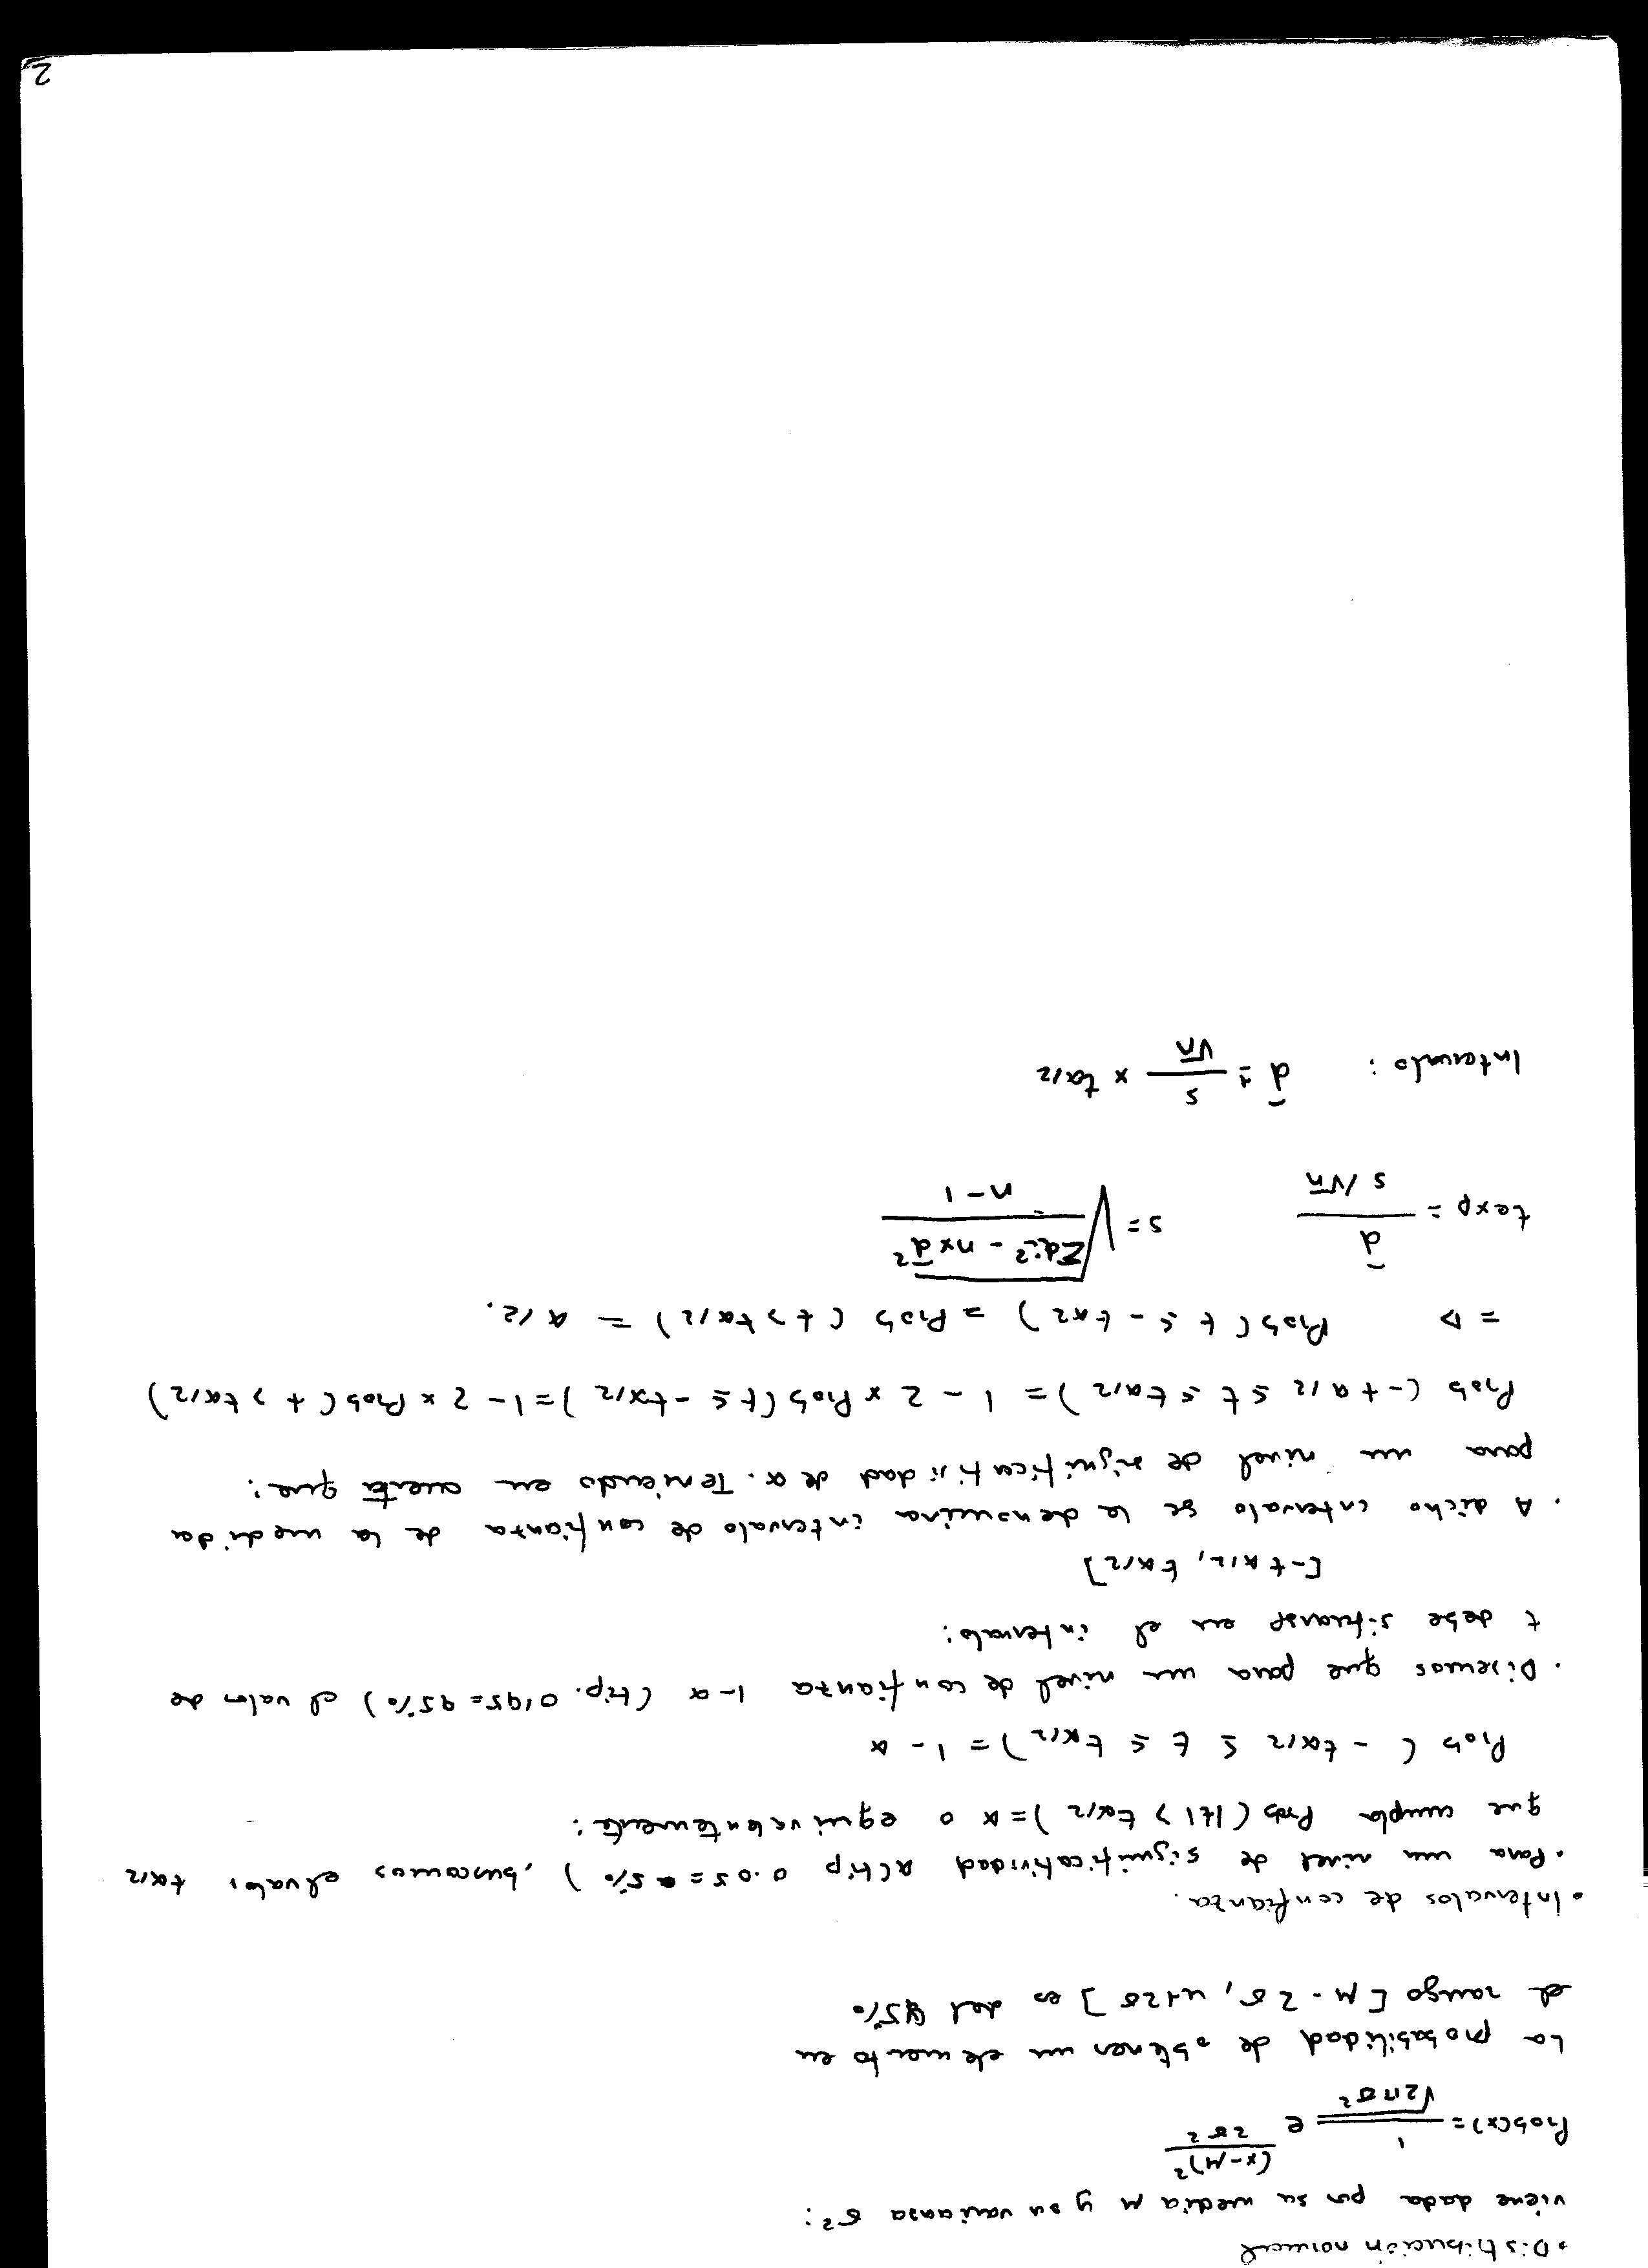 • Distribución normal
viene dada por su media μ y su varianza σ²:
Prob(x) = 1 / √(2πσ²) e^((x-μ)² / 2σ²)
La probabilidad de obtener un elemento en
el rango [μ - 2σ, u+2σ] es del 95%
• Intervalos de confianza.
• Para un nivel de significatividad α (tip 0.05 = 5%), buscamos el valor tα/2
que cumpla Prob (|t| > tα/2) = α o equivalentemente:
Prob (-tα/2 ≤ t ≤ tα/2) = 1 - α
• Diremos que para un nivel de confianza 1-α (tip. 0'95 = 95%) el valor de
t debe situarse en el intervalo:
[-tα/2, tα/2]
• A dicho intervalo se le denomina intervalo de confianza de la medida
para un nivel de significatividad de α. Teniendo en cuenta que:
Prob (-tα/2 ≤ t ≤ tα/2) = 1 - 2 x Prob (t ≤ -tα/2) = 1 - 2 x Prob (t > tα/2)
=> Prob (t ≤ -tα2) = Prob (t > tα/2) = α/2.
texp = d̄ / (s/√n) s = √((Σdi² - n x d̄²) / (n-1))
Intervalo: d̄ ± s/√n x tα/2
2